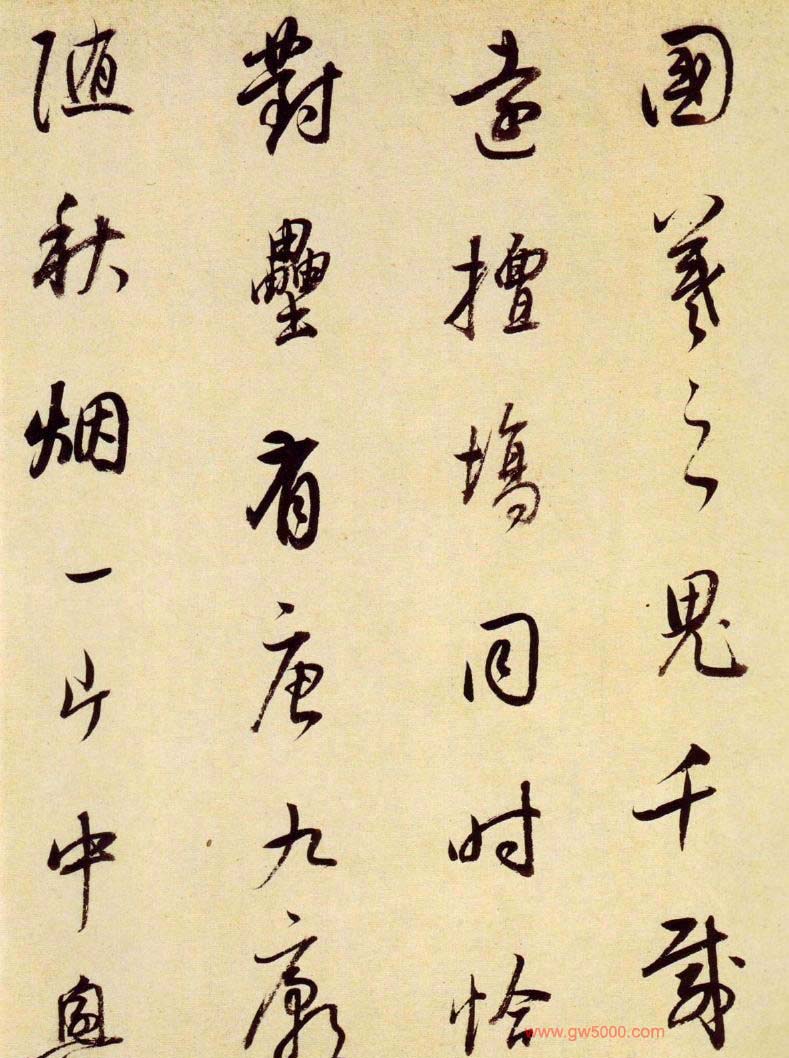 國羲之鬼千載
遠擅塲同时恰
對壘有唐九廟
随秋烟一片中興
www.gw5000.com